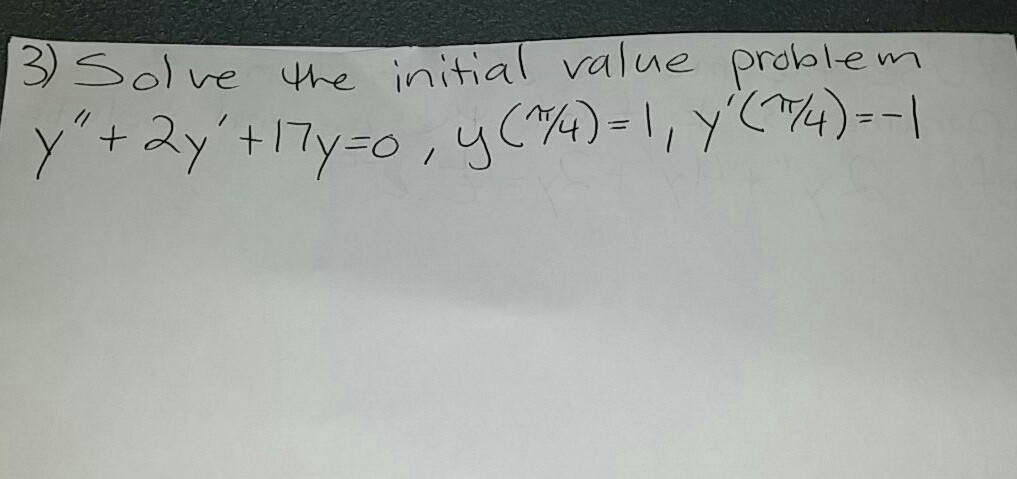 3) Solve the initial value problem
y"+2y'+17y=0, y(π/4)=1, y'(π/4)=-1